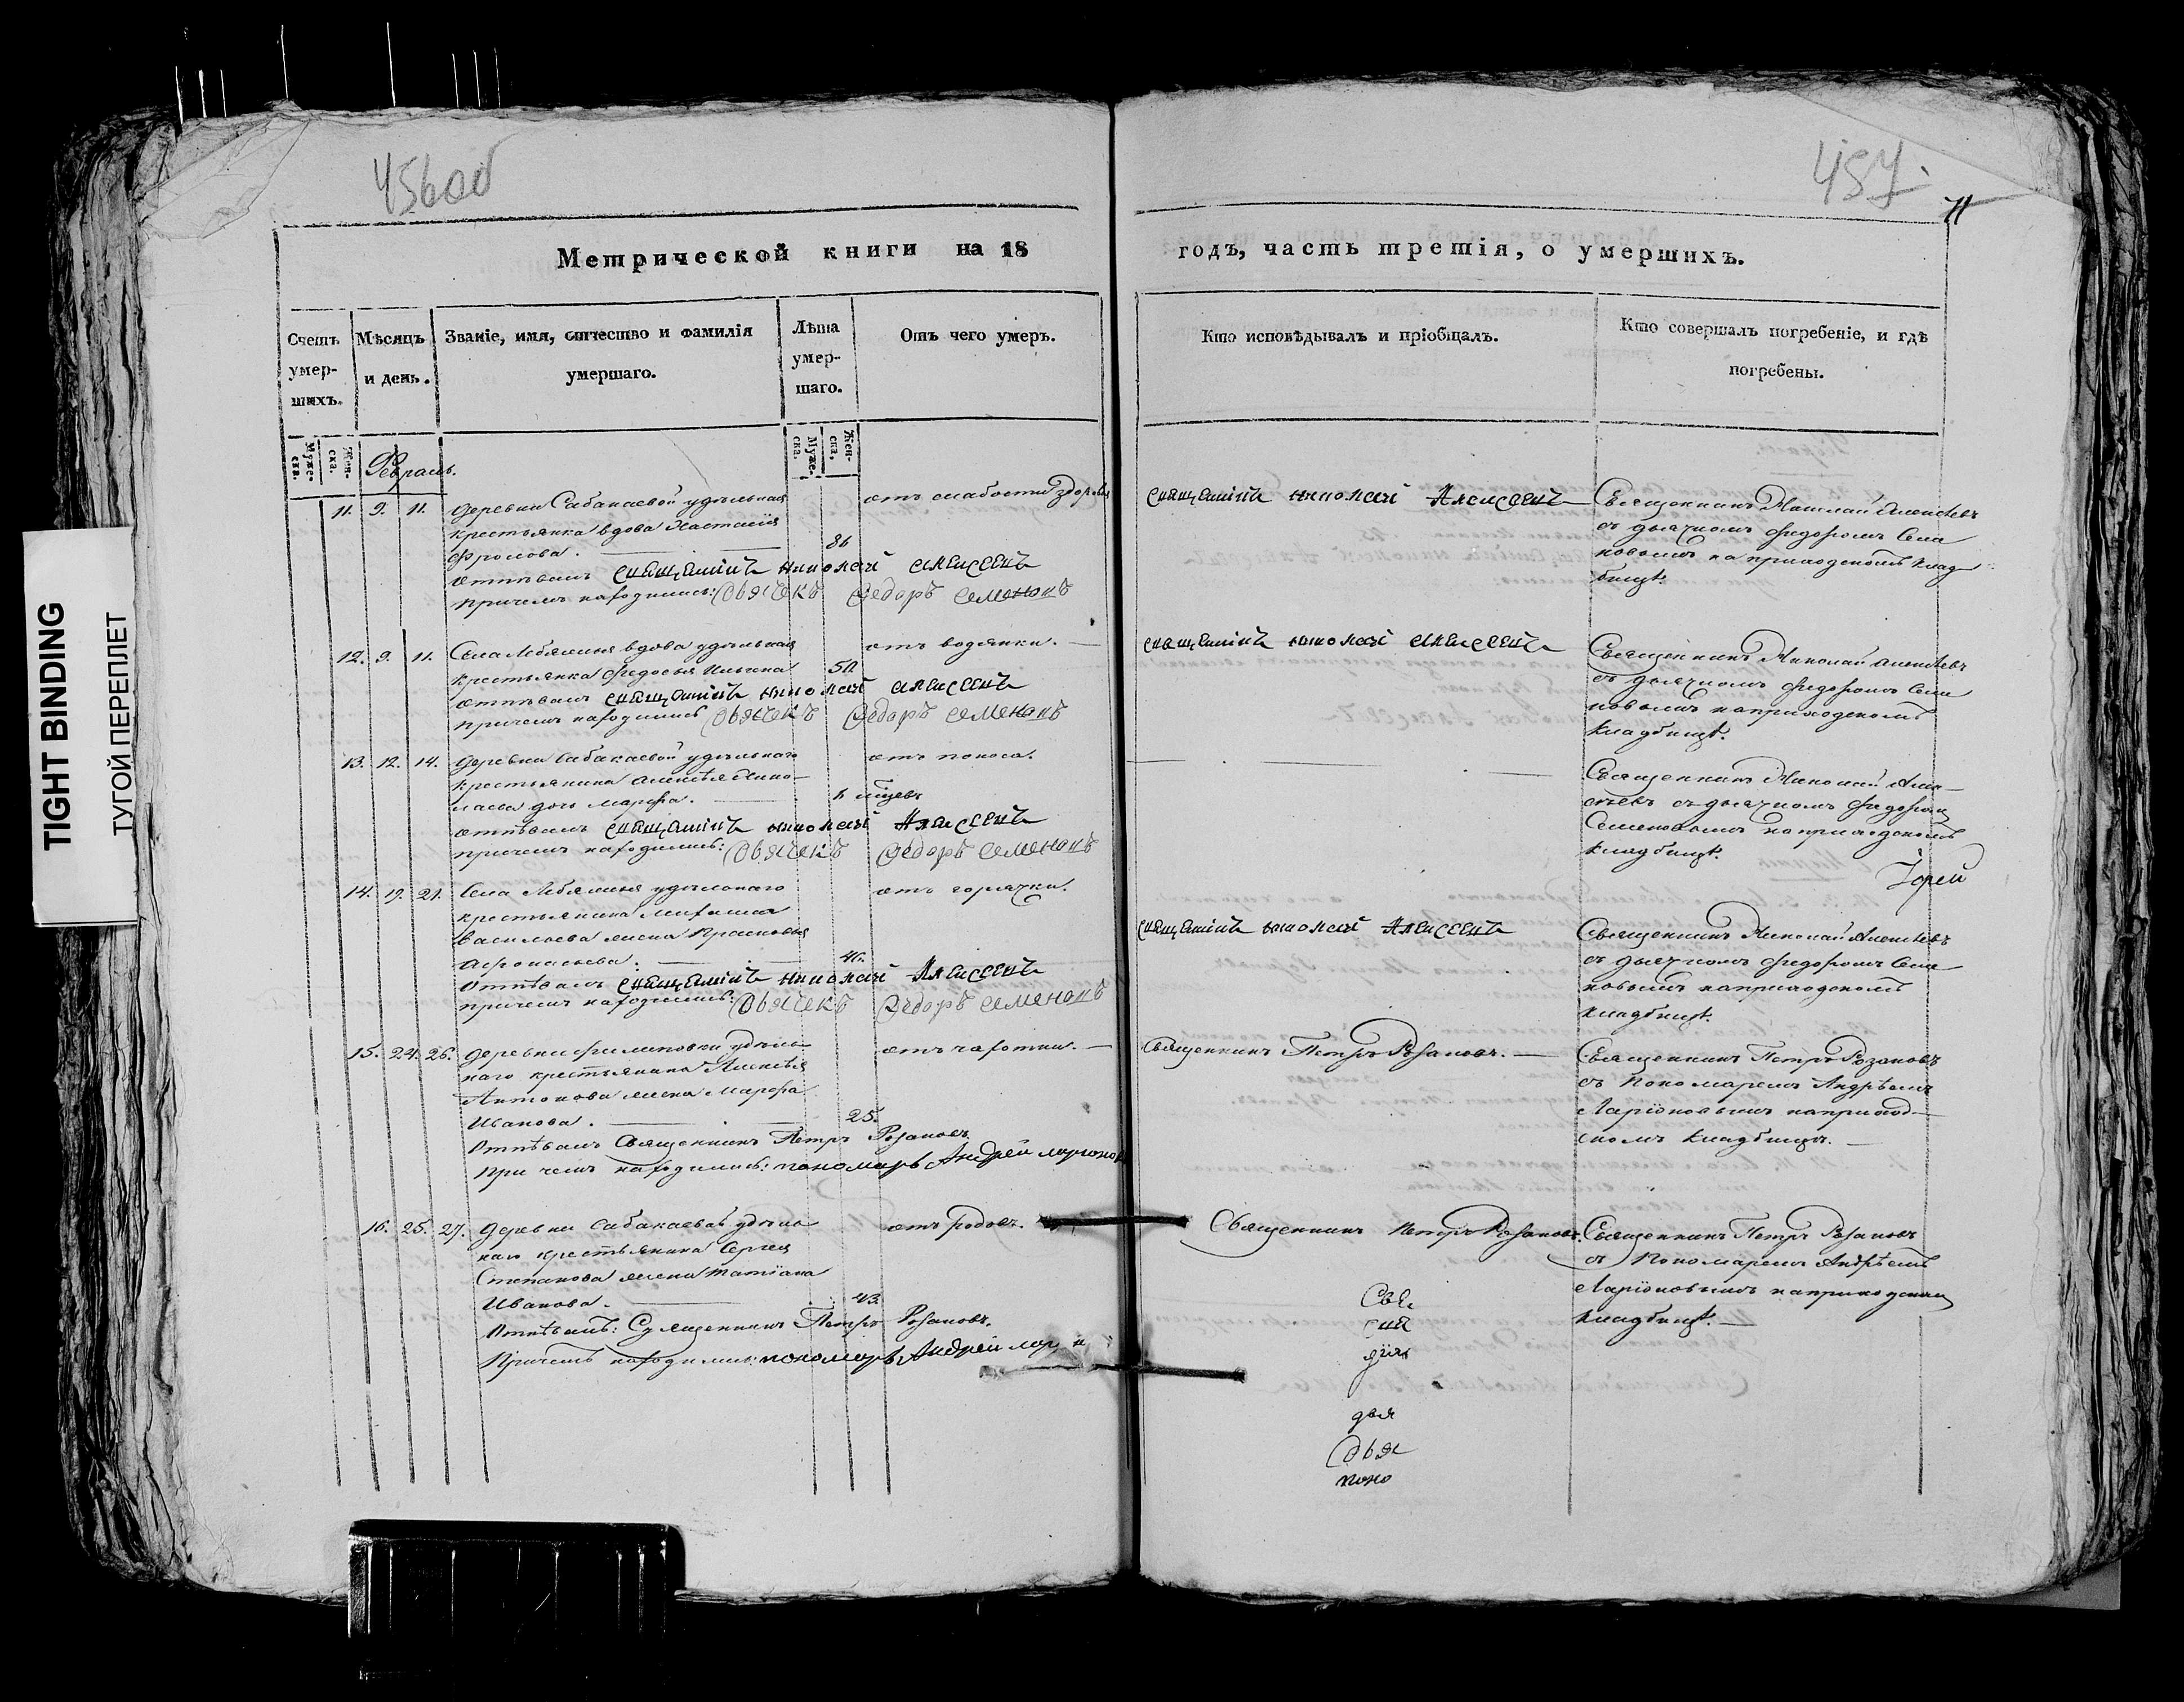 456об
457.
71
TIGHT BINDING
ТУГОЙ ПЕРЕПЛЕТ
Метрической книги на 18
годъ, часть третія, о умершихъ.
Счетъ умер-шихъ.
Мѣсяцъ и день.
Званіе, имя, отчество и фамилія умершаго.
Лѣта умер-шаго.
Отъ чего умеръ.
Кто исповѣдывалъ и пріобщалъ.
Кто совершалъ погребеніе, и гдѣ погребены.
Муже-ска.
Жен-ска.
Муже-ска.
Жен-ска,
Февраль.
11. 9. 11. Деревни Сабакаевой удѣльная
крестьянка вдова Настасія
Фролова. 86
отъ слабости здоровья
Отпѣвалъ священникъ николай алексеевъ
Причемъ находились: Дьячекъ Федоръ семеновъ
священникъ николай Алексеевъ
Священникъ Николай Алексѣевъ
съ дьячкомъ Федоромъ Семе
новымъ на приходскомъ клад
бищѣ.
12. 9. 11. Села Лебяжья вдова удѣльная
крестьянка Федосья Ильина 50.
отъ водянки.
отпѣвалъ священникъ николай алексеевъ
Причемъ находились Дьячекъ Федоръ семеновъ
священникъ николай алексеевъ
Священникъ Николай Алексѣевъ
съ дьячкомъ Федоромъ Семе
новымъ на приходскомъ
кладбищѣ.
13. 12. 14. Деревни Сабакаевой удѣльнаго
крестьянина Алексѣя Нико-
лаева дочь Марфа.
отъ поноса.
отпѣвалъ священникъ николай Алексеевъ
причемъ находились: Дьячекъ Федоръ семеновъ
Священникъ Николай Алек-
сѣевъ съ дьячкомъ Федоромъ
Семеновымъ на приходскомъ
кладбищѣ.
Іерей
14. 19. 21. Села Лебяжья удѣльнаго
крестьянина
Васильева жена Прасковья
40.
отъ горячки.
Отпѣвалъ священникъ николай Алексеевъ
причемъ находились: Дьячекъ Федоръ семеновъ
священникъ николай Алексеевъ
Священникъ Николай Алексѣевъ
съ дьячкомъ Федоромъ Семе
новымъ на приходскомъ
кладбищѣ.
15. 24. 26. Деревни Филиповки удѣль-
наго крестьянина Алексѣя
Антонова жена Марфа
Иванова. 25.
отъ чахотки.
Отпѣвалъ Священникъ Петръ Розановъ
При чемъ находились: пономарь Андрей ларионовъ
Священникъ Петръ Розановъ.
Священникъ Петръ Розановъ
съ Пономаремъ Андрѣемъ
Ларіоновымъ на приход-
скомъ кладбищѣ.
16. 25. 27. Деревни Сабакаевой удѣль
наго крестьянина Сергея
Степанова жена Татіана
Иванова. 43.
отъ родовъ.
Отпѣвалъ: Священникъ Петръ Розановъ.
Причемъ находились: пономарь Андрей лар
Священникъ Петръ Розановъ.
Священникъ Петръ Розановъ
съ Пономаремъ Андрѣемъ
Ларіоновымъ на приходскомъ
кладбищѣ.
дья
Дьяч
поно